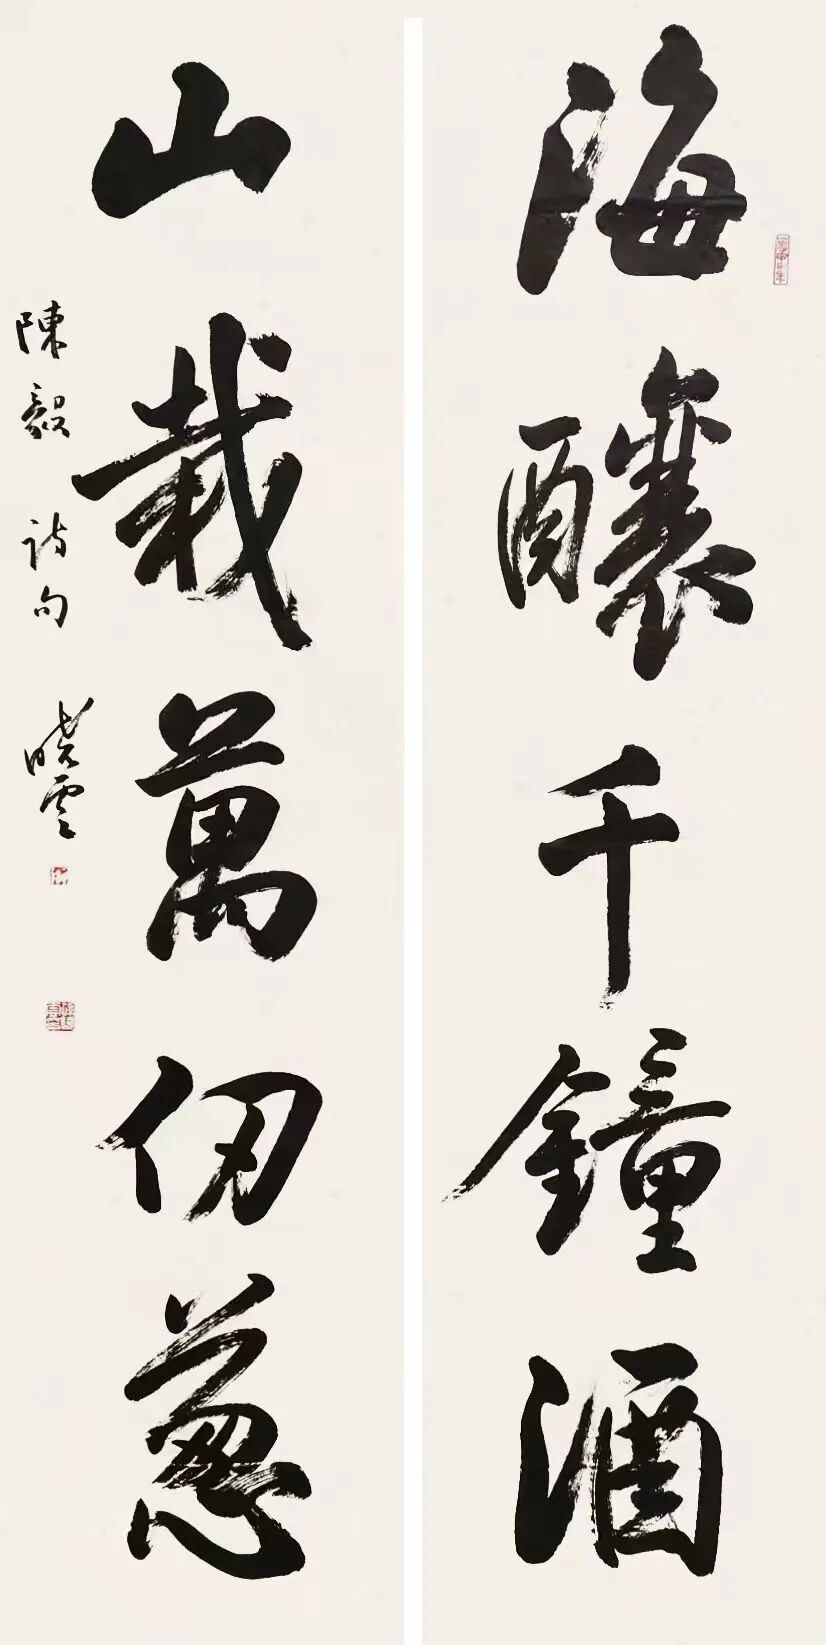 海釀千鐘酒
山栽萬仞葱
陳毅詩句 曉雲